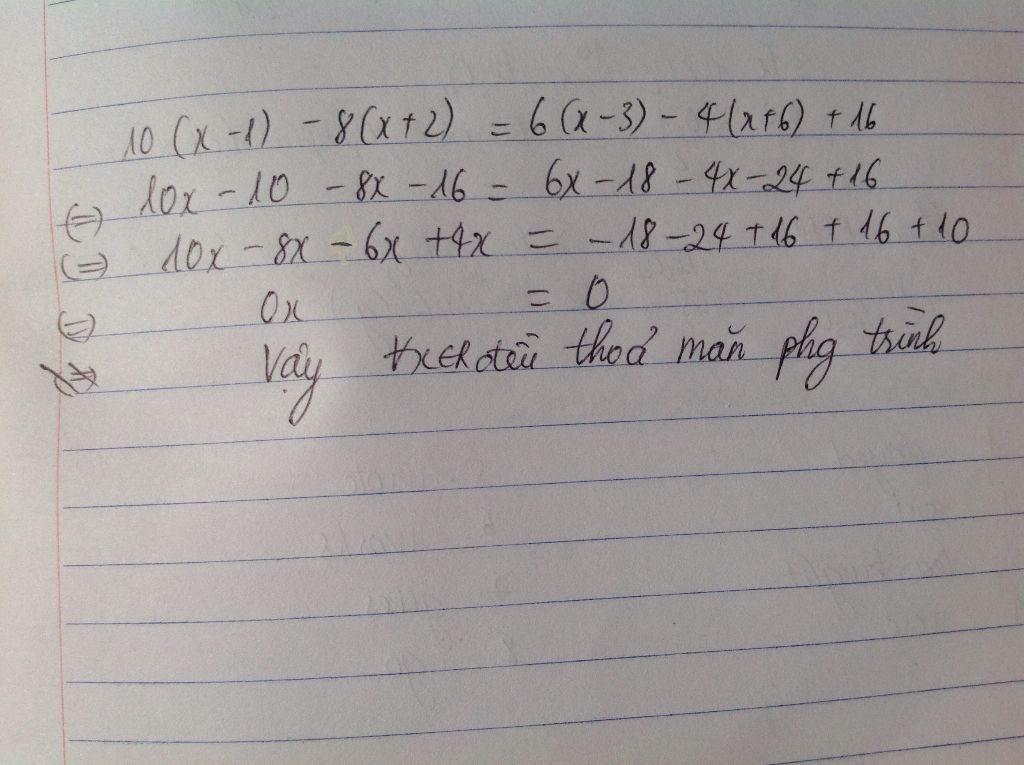 10 (x - 1) - 8(x + 2) = 6 (x - 3) - 4(x + 6) + 16
(=) 10x - 10 - 8x - 16 = 6x - 18 - 4x - 24 + 16
(=) 10x - 8x - 6x + 4x = - 18 - 24 + 16 + 16 + 10
(=) 0x = 0
Vậy ∀x∈R đều thoả mãn phg trình